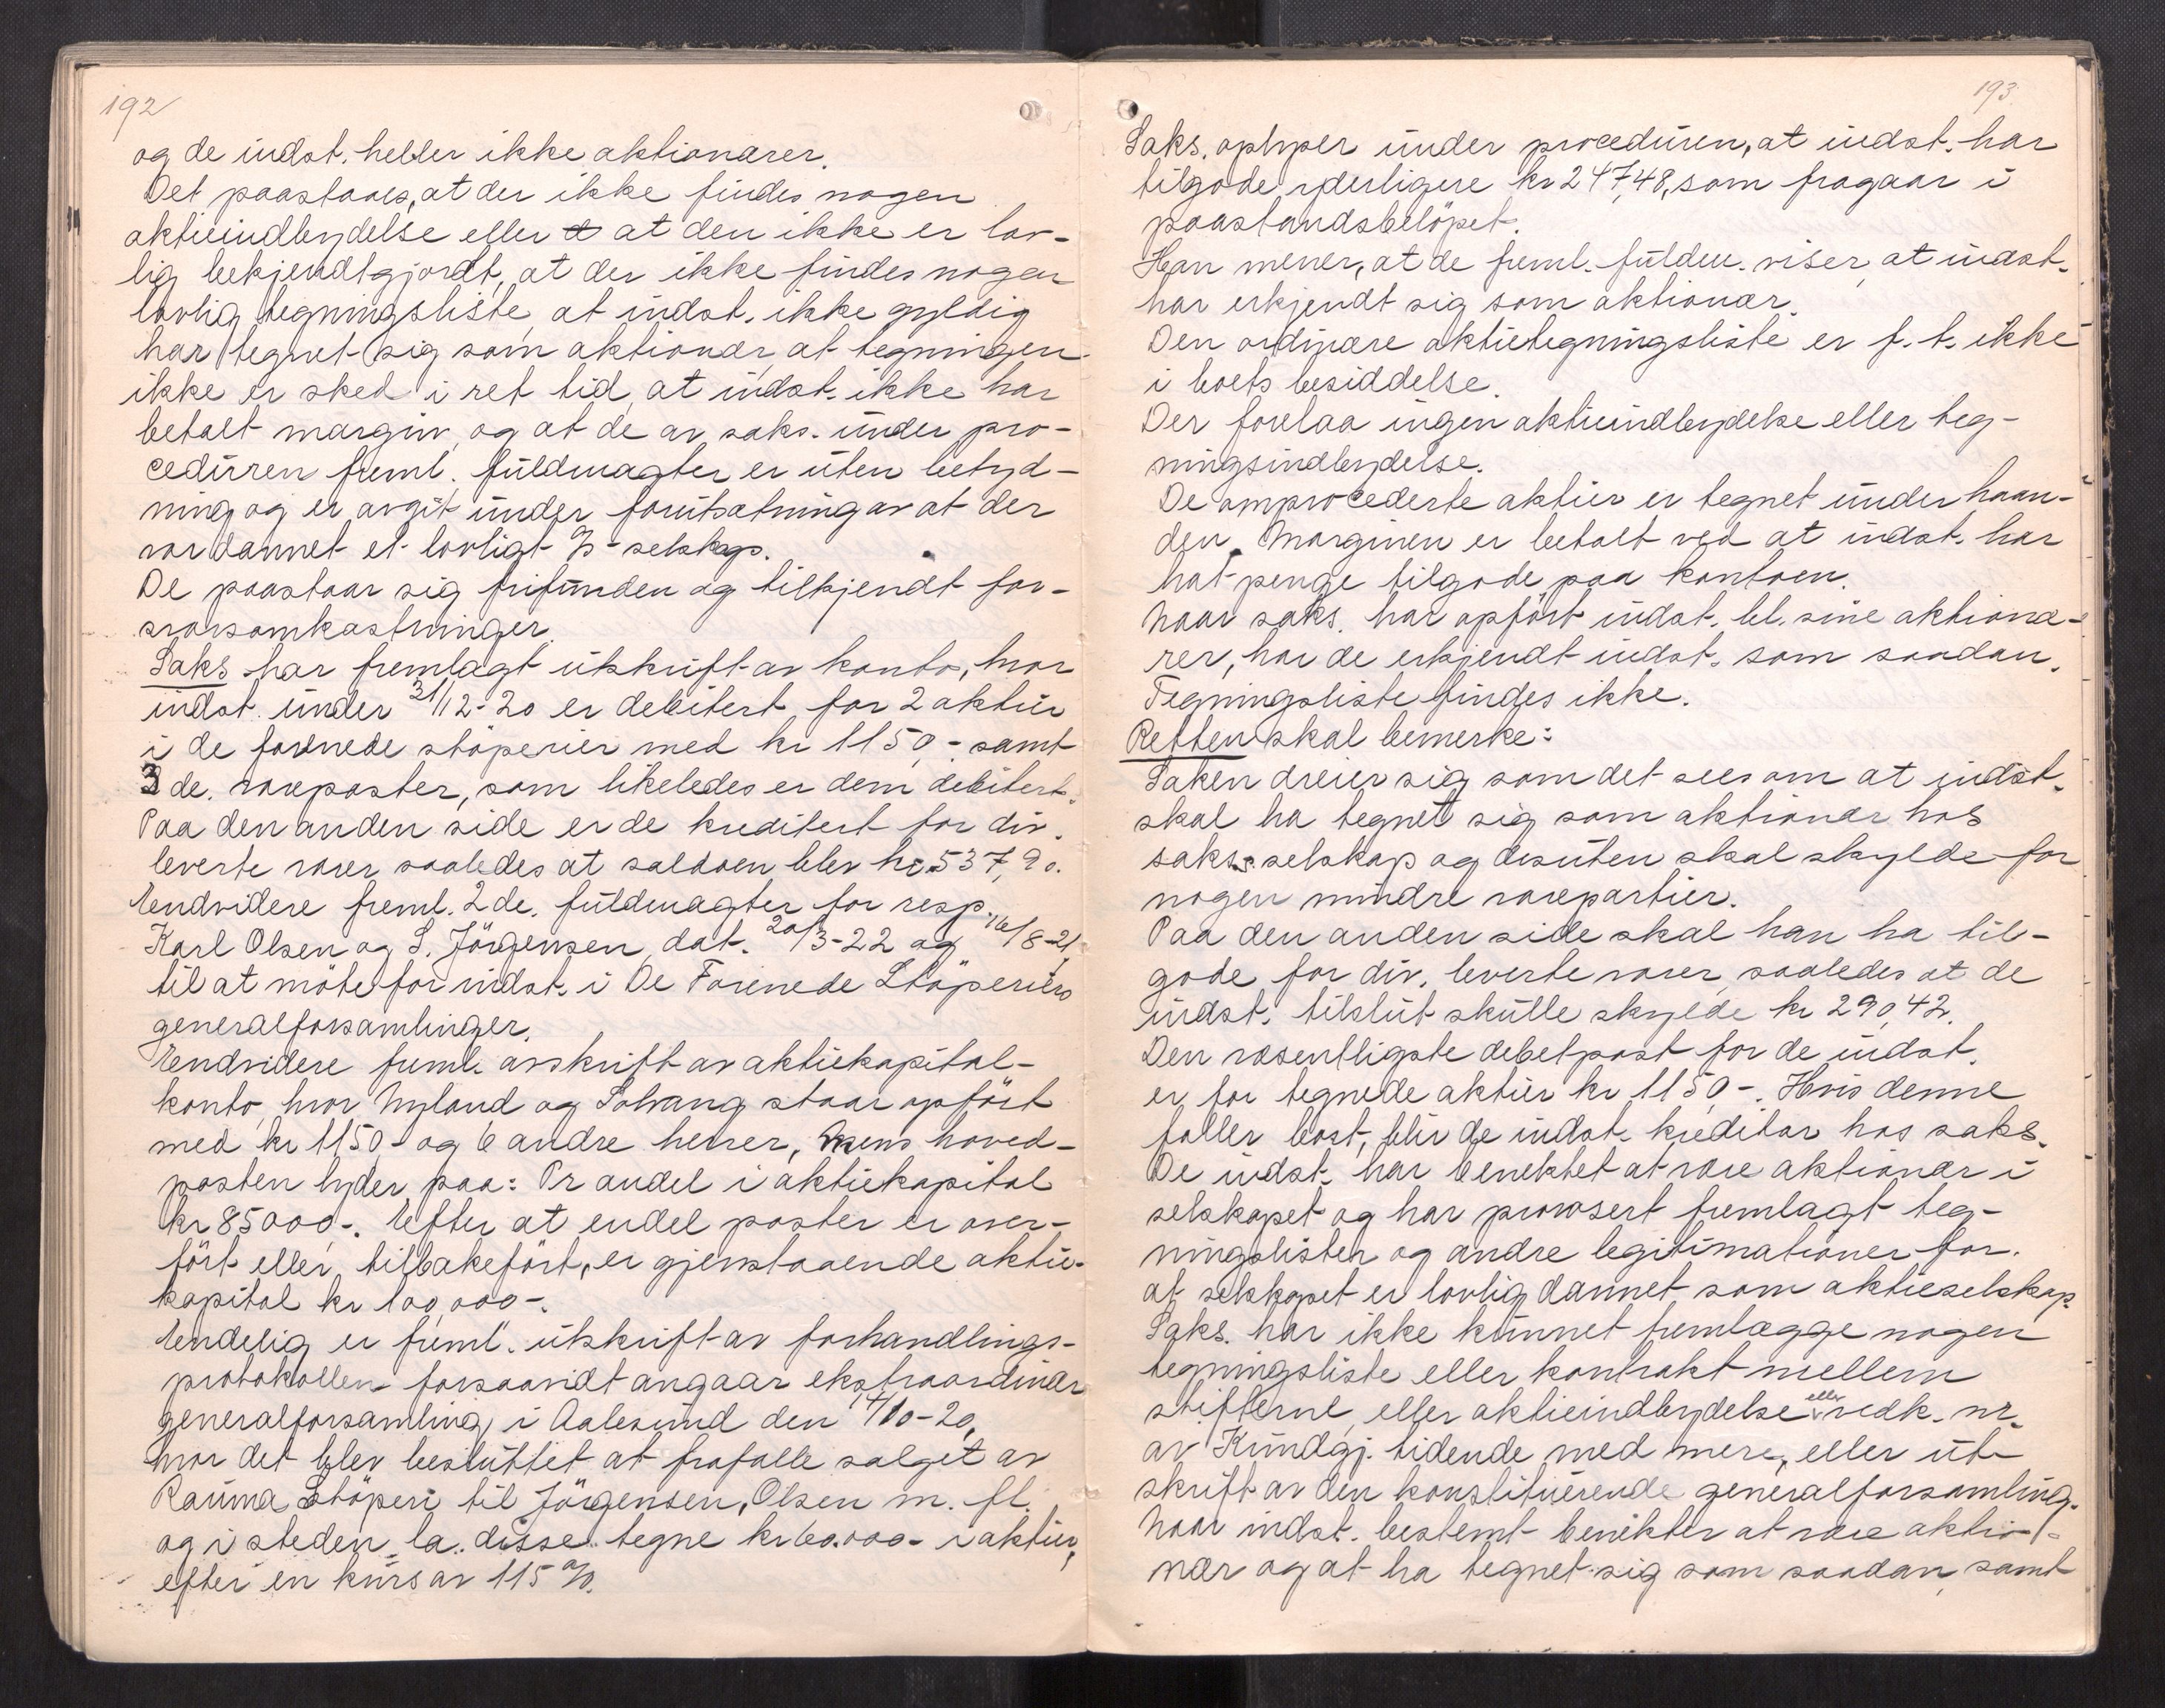 192
og de indst. heller ikke aktionærer.
Det paastaaes, at der ikke findes nogen
aktieindbydelse eller at den ikke er lov-
lig bekjendtgjordt, at der ikke findes nogen
lovlig tegningsliste, at indst. ikke gyldig
har tegnet sig som aktionær, at tegningen
ikke er sked i ret tid, at indst. ikke har
betalt margin, og at de av saks. under pro-
ceduren freml. fuldmagter er uten betyd-
ning og er avgit under forutsætning av at der
var dannet et lovligt A/S-selskap.
De paastaar sig frifunden og tilkjendt for-
svarsomkastninger.
Saks har fremlagt utskrift av konto, hvor
indst. under 31/12-20 er debitert for 2 aktier
i de forenede støperier med kr 1150,- samt
3 de. vareposter, som likeledes er dem debitert.
Paa den anden side er de kreditert for div.
leverte varer saaledes at saldoen blev kr. 537,90.
Endvidere freml. 2 de. fuldmagter for resp.
Karl Olsen og S. Jörgensen, dat. 20/3-22 og 16/8-21,
til at möte for indst. i De Forenede Stöperiers
generalforsamlinger.
Endvidere freml. avskrift av aktiekapital-
konto, hvor Nyland og Solvang staar opfört
med kr 1150,- og 6 andre herrer, mens hoved-
posten lyder paa: Pr andel i aktiekapital
kr 85000,-. Efter at endel poster er over-
fört eller tilbakefört, er gjenstaaende aktie-
kapital kr 100,000-.
Endelig er freml. utskrift av forhandlings-
protokollen forsaavidt angaar ekstraordinær
generalforsamling i Aalesund den 14/10-20,
hvor det blev besluttet at frafalle salget av
Rauma Stöperi til Jörgensen, Olsen m. fl.
og i steden la disse tegne kr 60.000- i aktier,
efter en kurs av 115 %.
193
Saks. oplyser under proceduren, at indst. har
tilgode yderligere kr 247,48, som fragaar i
paastandsbelöpet.
Han mener, at de freml. fuldm. viser, at indst.
har erkjendt sig som aktionær.
Den ordinære aktietegningsliste er f. t. ikke
i boets besiddelse.
Der forelaa ingen aktieindbydelse eller teg-
ningsindbydelse.
De omprocederte aktier er tegnet under haan-
den. Marginen er betalt ved at indst. har
hat penge tilgode paa kontoen.
Naar saks. har opfört indst. bl. sine aktionæ-
rer, har de erkjendt indst. som saadan.
Tegningsliste findes ikke.
Retten skal bemerke:
Saken dreier sig som det sees om at indst.
skal ha tegnet sig som aktionær hos
saks. selskap og desuten skal skylde for
nogen mindre varepartier.
Paa den anden side skal han ha til-
gode for div. leverte varer, saaledes at de
indst. tilslut skulle skylde kr 290,42.
Den væsentligste debetpost for de indst.
er for tegnede aktier kr 1150,-. Hvis denne
faller bort, blir de indst. kreditor hos saks.
De indst. har benektet at være aktionær i
selskapet og har provosert fremlagt teg-
ningslister og andre legitimationer for.
at selskapet er lovlig dannet som aktieselskap.
Saks. har ikke kunnet fremlægge nogen
tegningsliste eller kontrakt mellem
stifterne, eller aktieindbydelse eller vedk. nr.
av Kundgj. tidende med mere, eller ut-
skrift av den konstituerende generalforsamling.
Naar indst. bestemt benekter at være aktio-
nær og at ha tegnet sig som saadan, samt